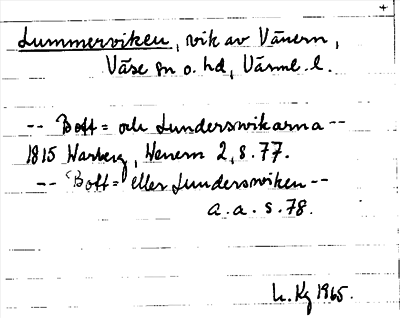 Lummerviken, vik av Vänern,
Väse sn o. hd, Värml. l.
-- Bott= och Lundersvikarna --
1815 Warberg, Wenern 2, s. 77.
-- "Bott= eller Lundersviken --
a. a. s. 78.
L. Kg 1965.